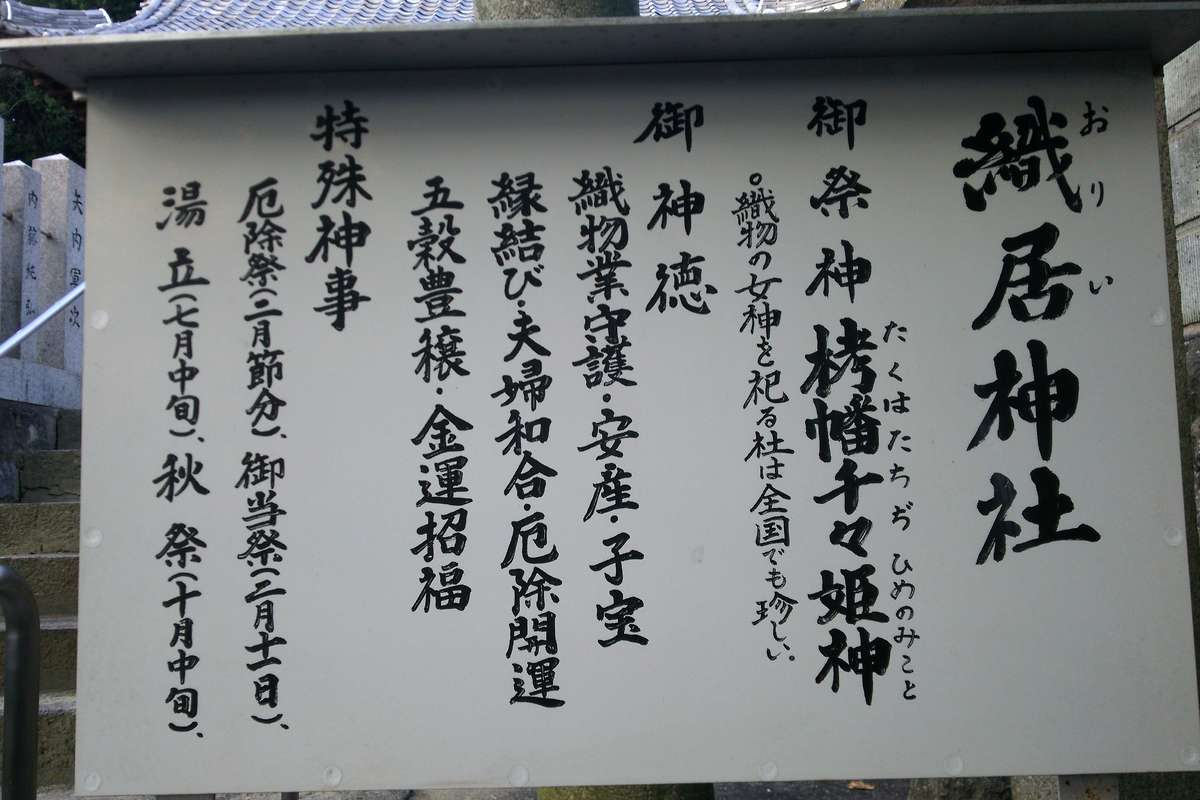 織居神社
おりい
御祭神 栲幡千々姫神
たくはたちぢひめのみこと
○織物の女神を祀る社は全国でも珍しい。
御神徳
織物業守護・安産・子宝
縁結び・夫婦和合・厄除開運
五穀豊穣・金運招福
特殊神事
厄除祭(二月節分)、御当祭(三月十一日)、
湯立(七月中旬)、秋祭(十月中旬)、
矢内軍次